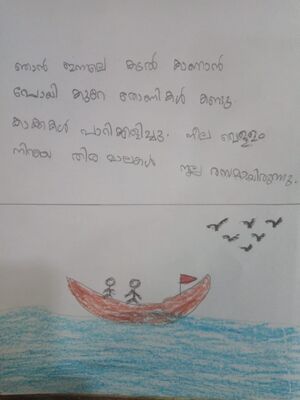 ഞാൻ ഇന്നലെ കടൽ കാണാൻ
പോയി കുറെ തോണികൾ കണ്ടു
കാക്കകൾ പാറിക്കളിച്ചു. നീല വെള്ളം
നിറയെ തിരമാലകൾ നല്ല രസമായിരുന്നു.